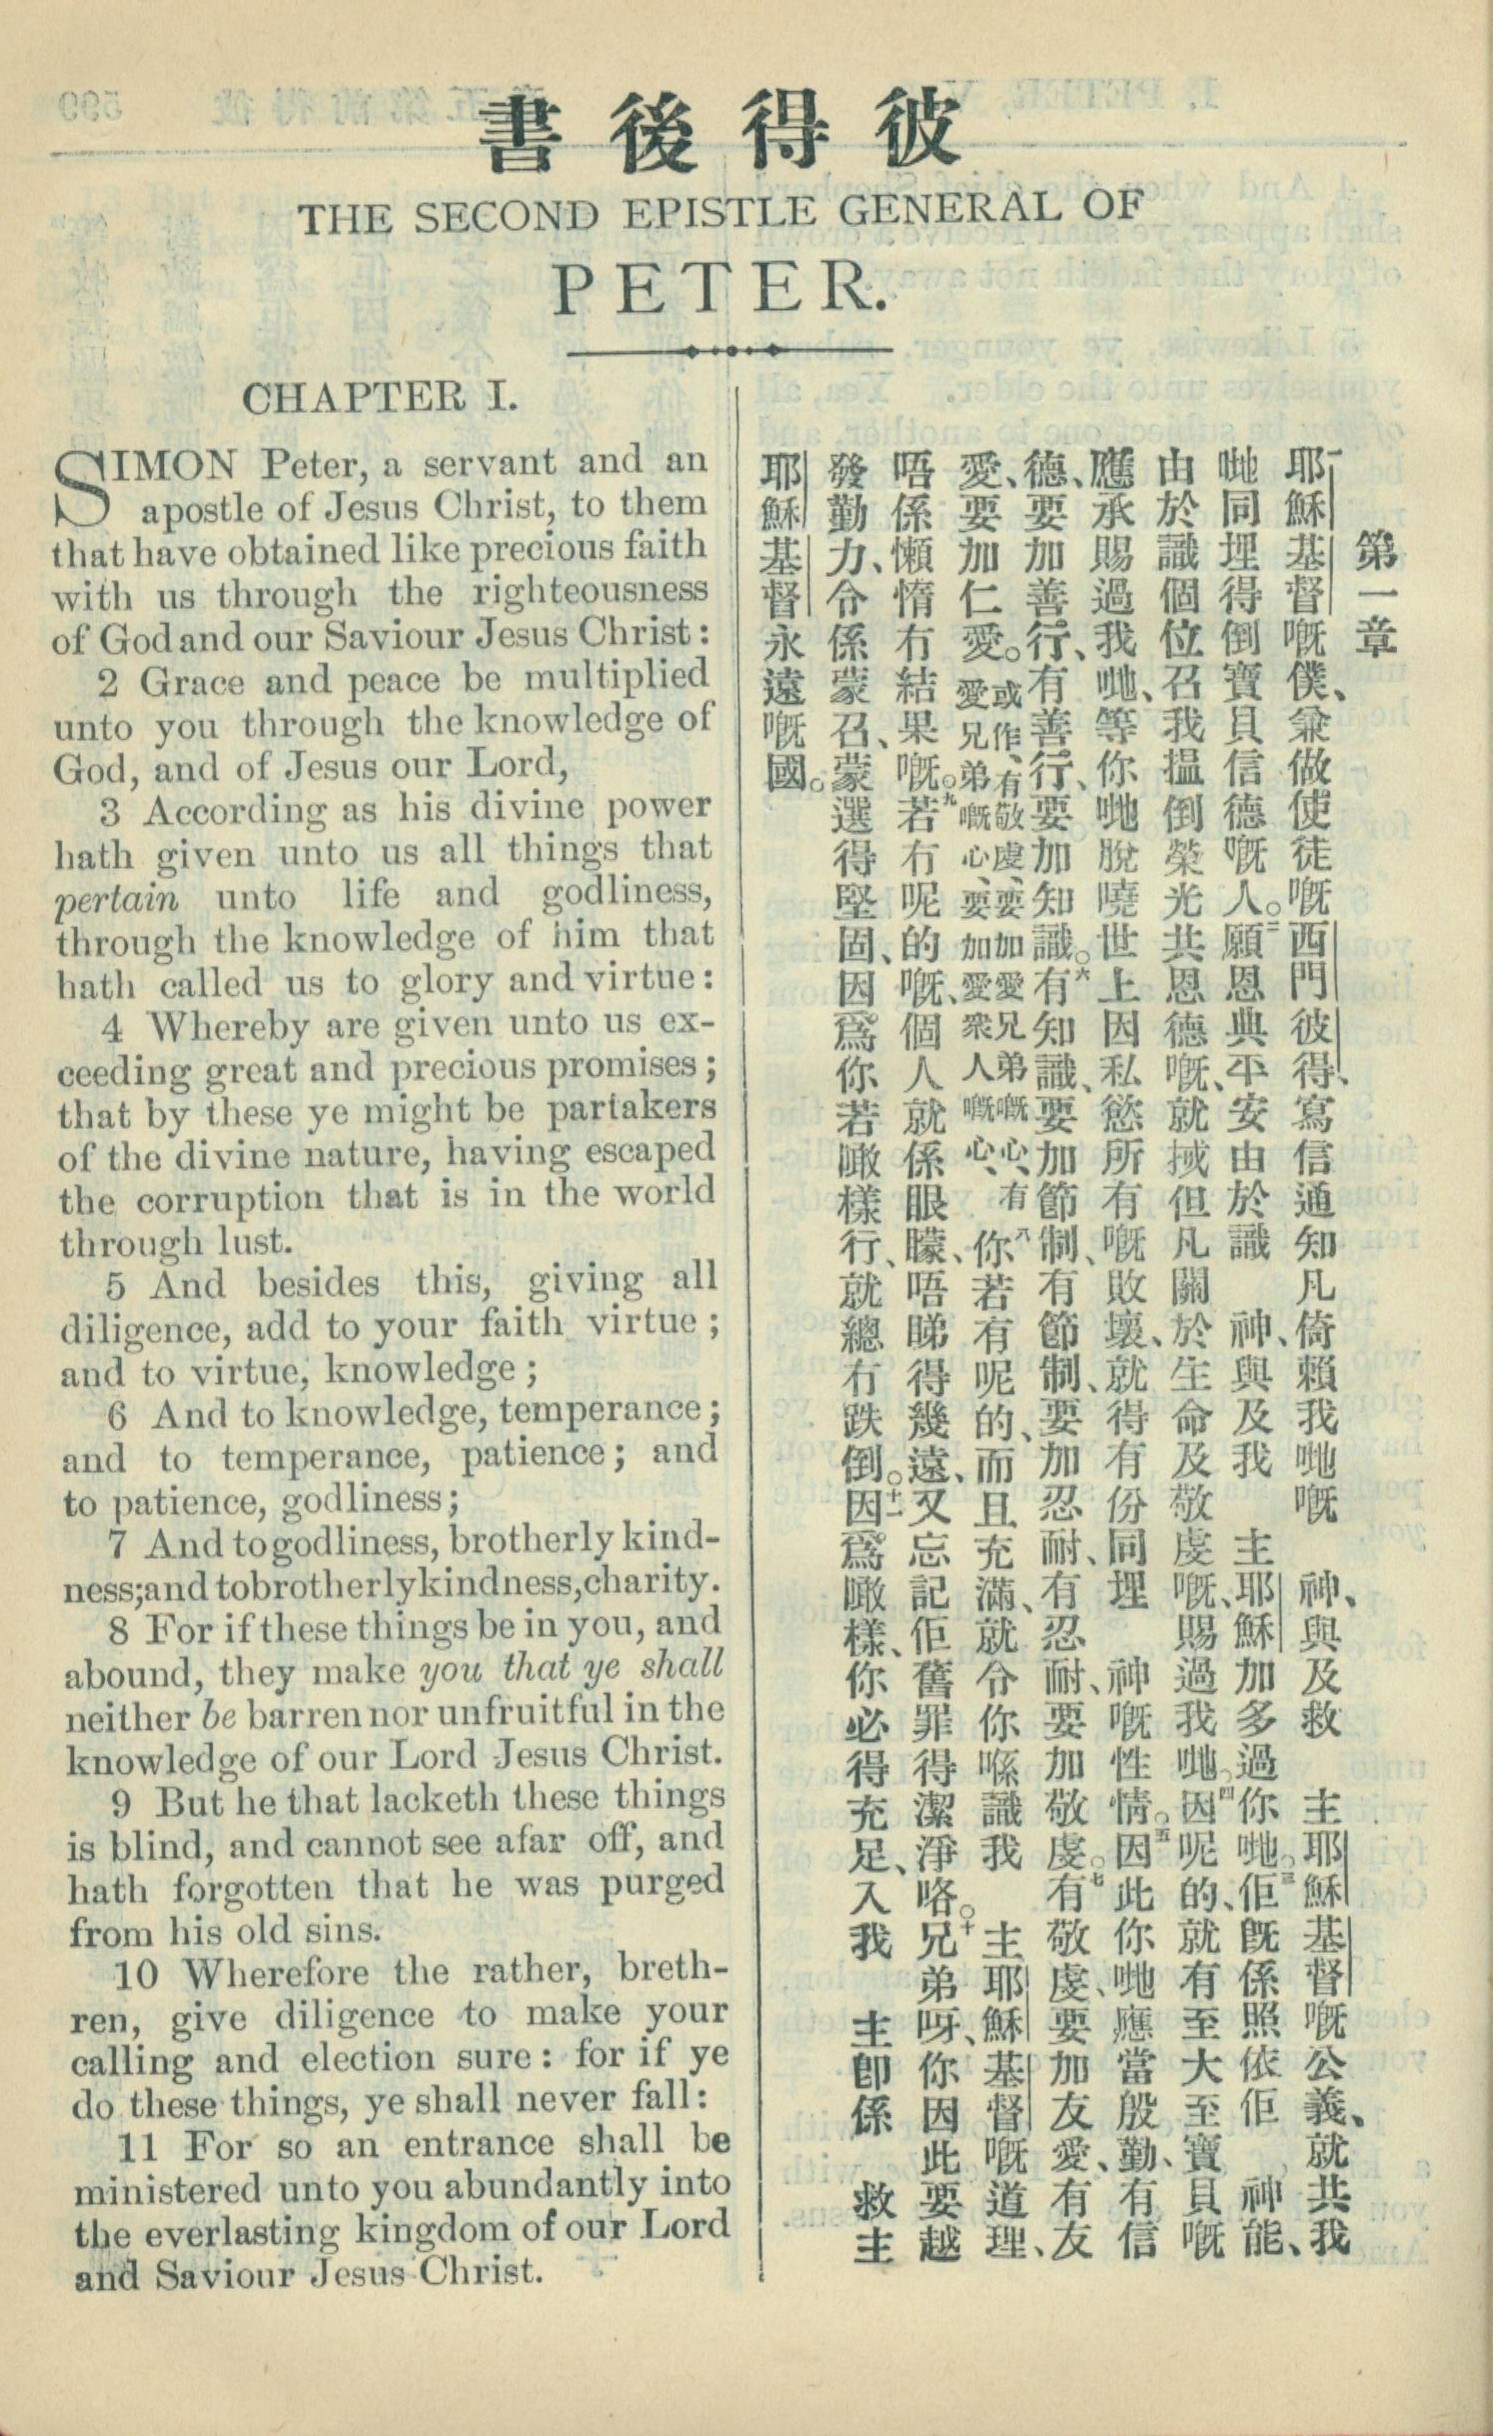 彼得後書
THE SECOND EPISTLE GENERAL OF
PETER.
CHAPTER I.
SIMON Peter, a servant and an
apostle of Jesus Christ, to them
that have obtained like precious faith
with us through the righteousness
of God and our Saviour Jesus Christ:
2 Grace and peace be multiplied
unto you through the knowledge of
God, and of Jesus our Lord,
3 According as his divine power
hath given unto us all things that
pertain unto life and godliness,
through the knowledge of him that
hath called us to glory and virtue:
4 Whereby are given unto us ex-
ceeding great and precious promises;
that by these ye might be partakers
of the divine nature, having escaped
the corruption that is in the world
through lust.
5 And besides this, giving all
diligence, add to your faith virtue;
and to virtue, knowledge;
6 And to knowledge, temperance;
and to temperance, patience; and
to patience, godliness;
7 And to godliness, brotherly kind-
ness; and to brotherly kindness, charity.
8 For if these things be in you, and
abound, they make you that ye shall
neither be barren nor unfruitful in the
knowledge of our Lord Jesus Christ.
9 But he that lacketh these things
is blind, and cannot see afar off, and
hath forgotten that he was purged
from his old sins.
10 Wherefore the rather, breth-
ren, give diligence to make your
calling and election sure: for if ye
do these things, ye shall never fall:
11 For so an entrance shall be
ministered unto you abundantly into
the everlasting kingdom of our Lord
and Saviour Jesus Christ.
第一章
一耶穌基督嘅僕、兼做使徒嘅西門彼得、寫信通知凡倚賴我哋嘅 神、與及救 主耶穌基督嘅公義、就共我
哋同埋得倒寶貝信德嘅人。二願恩典平安由於識 神、與及我 主耶穌加多過你哋。三佢既係照依佢 神能、
由於識個位召我搵倒榮光共恩德嘅、就掝但凡關於生命及敬虔嘅、賜過我哋。四因呢的、就有至大至寶貝嘅
應承賜過我哋、等你哋脫嘵世上因私慾所有嘅敗壞、就得有份同埋 神嘅性情。五因此你哋應當殷勤、有信
德、要加善行、有善行、要加知識。六有知識、要加節制、有節制、要加忍耐、有忍耐、要加敬虔。七有敬虔、要加友愛、有友
愛、要加仁愛。或作、有敬虔、要加愛兄弟嘅心、有愛兄弟嘅心、要加愛衆人嘅心、八你若有呢的、而且充滿、就令你喺識我 主耶穌基督嘅道理、
唔係懶惰冇結果嘅。九若冇呢的嘅、個人就係眼矇、唔睇得幾遠、又忘記佢舊罪得潔淨咯。十兄弟呀、你因此要越
發勤力、令係蒙召、蒙選得堅固、因爲你若噉樣行、就總冇跌倒。十一因爲噉樣、你必得充足、入我 主卽係 救主
耶穌基督永遠嘅國。